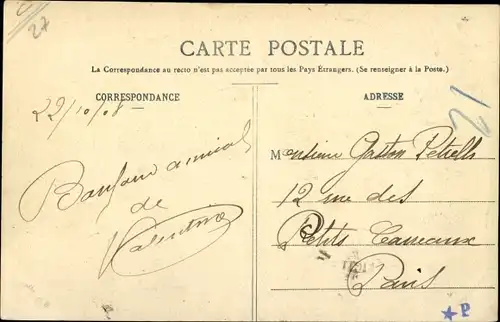 27
CARTE POSTALE
La Correspondance au recto n'est pas acceptée par tous les Pays Étrangers. (Se renseigner à la Poste.)
CORRESPONDANCE
ADRESSE
22/10/08
21
Bonjour amical
de
Valentine
Monsieur Gaston
12 rue des
Petits Carreaux
Paris
P